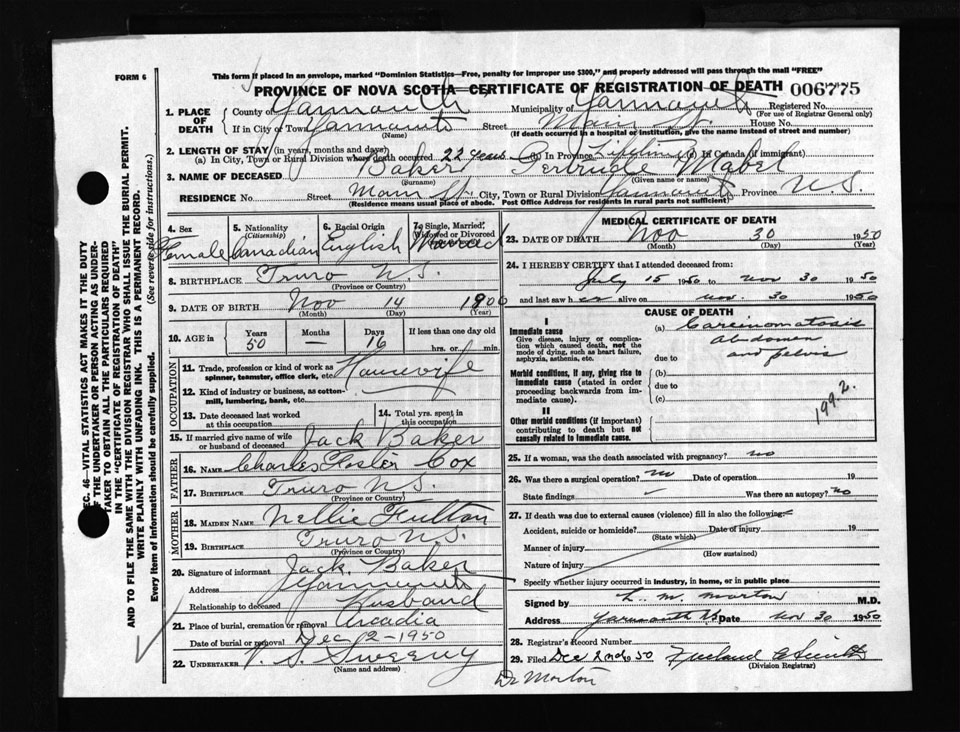 FORM 6
This form if placed in an envelope, marked "Dominion Statistics—Free, penalty for improper use $300," and properly addressed will pass through the mail "FREE"
PROVINCE OF NOVA SCOTIA—CERTIFICATE OF REGISTRATION OF DEATH 006775
1. PLACE OF DEATH County of Yarmouth Municipality of Yarmouth Registered No.
(For use of Registrar General only)
If in City or Town Yarmouth Street Main St. House No.
(Name) (If death occurred in a hospital or institution, give the name instead of street and number)
2. LENGTH OF STAY (in years, months and days)
(a) In City, Town or Rural Division where death occurred 22 years (b) In Province Lifetime (c) In Canada (if immigrant)
3. NAME OF DECEASED Baker Gertrude Mabel
(Surname) (Given name or names)
RESIDENCE No. Street Main St. City, Town or Rural Division Yarmouth Province N.S.
(Residence means usual place of abode. Post Office Address for residents in rural parts not sufficient)
4. Sex Female
5. Nationality (Citizenship) Canadian
6. Racial Origin English
7. Single, Married, Widowed or Divorced Married
8. BIRTHPLACE Truro N.S.
(Province or Country)
9. DATE OF BIRTH Nov 14 1900
(Month) (Day) (Year)
10. AGE in Years Months Days If less than one day old
50 — 16 hrs. or min.
OCCUPATION
11. Trade, profession or kind of work as spinner, teamster, office clerk, etc. Housewife
12. Kind of industry or business, as cotton-mill, lumbering, bank, etc.
13. Date deceased last worked at this occupation
14. Total yrs. spent in this occupation
15. If married give name of wife or husband of deceased Jack Baker
FATHER
16. NAME Charles Foster Cox
17. BIRTHPLACE Truro N.S.
(Province or Country)
MOTHER
18. MAIDEN NAME Nellie Fulton
19. BIRTHPLACE Truro N.S.
(Province or Country)
20. Signature of informant Jack Baker
Address Yarmouth
Relationship to deceased Husband
21. Place of burial, cremation or removal Arcadia
Date of burial or removal Dec 2-1950
22. UNDERTAKER V. S. Sweeny
(Name and address)
MEDICAL CERTIFICATE OF DEATH
23. DATE OF DEATH Nov 30 1950
(Month) (Day) (Year)
24. I HEREBY CERTIFY that I attended deceased from:
July 15 1950 to Nov 30 1950
and last saw her alive on Nov. 30 1950
CAUSE OF DEATH
I
Immediate cause
Give disease, injury or complication which caused death, not the mode of dying, such as heart failure, asphyxia, asthenia, etc.
(a) Carcinomatosis abdomen and pelvis
due to
Morbid conditions, if any, giving rise to immediate cause (stated in order proceeding backwards from immediate cause).
(b)
due to
(c)
199.2.
II
Other morbid conditions (if important) contributing to death but not causally related to immediate cause.
25. If a woman, was the death associated with pregnancy? no
26. Was there a surgical operation? no Date of operation 19
State findings Was there an autopsy? no
27. If death was due to external causes (violence) fill in also the following:
Accident, suicide or homicide? Date of injury 19
(State which)
Manner of injury
(How sustained)
Nature of injury
Specify whether injury occurred in industry, in home, or in public place
Signed by L. M. Morton M.D.
Address Yarmouth NS Date Nov 30 1950
28. Registrar's Record Number
29. Filed Dec 2nd 1950
(Division Registrar)
Dr Morton
SEC. 46—VITAL STATISTICS ACT MAKES IT THE DUTY
OF THE UNDERTAKER OR PERSON ACTING AS UNDER-
TAKER TO OBTAIN ALL THE PARTICULARS REQUIRED
IN THE "CERTIFICATE OF REGISTRATION OF DEATH"
AND TO FILE THE SAME WITH THE DIVISION REGISTRAR WHO SHALL ISSUE THE BURIAL PERMIT.
WRITE PLAINLY WITH UNFADING INK. THIS IS A PERMANENT RECORD.
Every item of information should be carefully supplied. (See reverse side for instructions.)